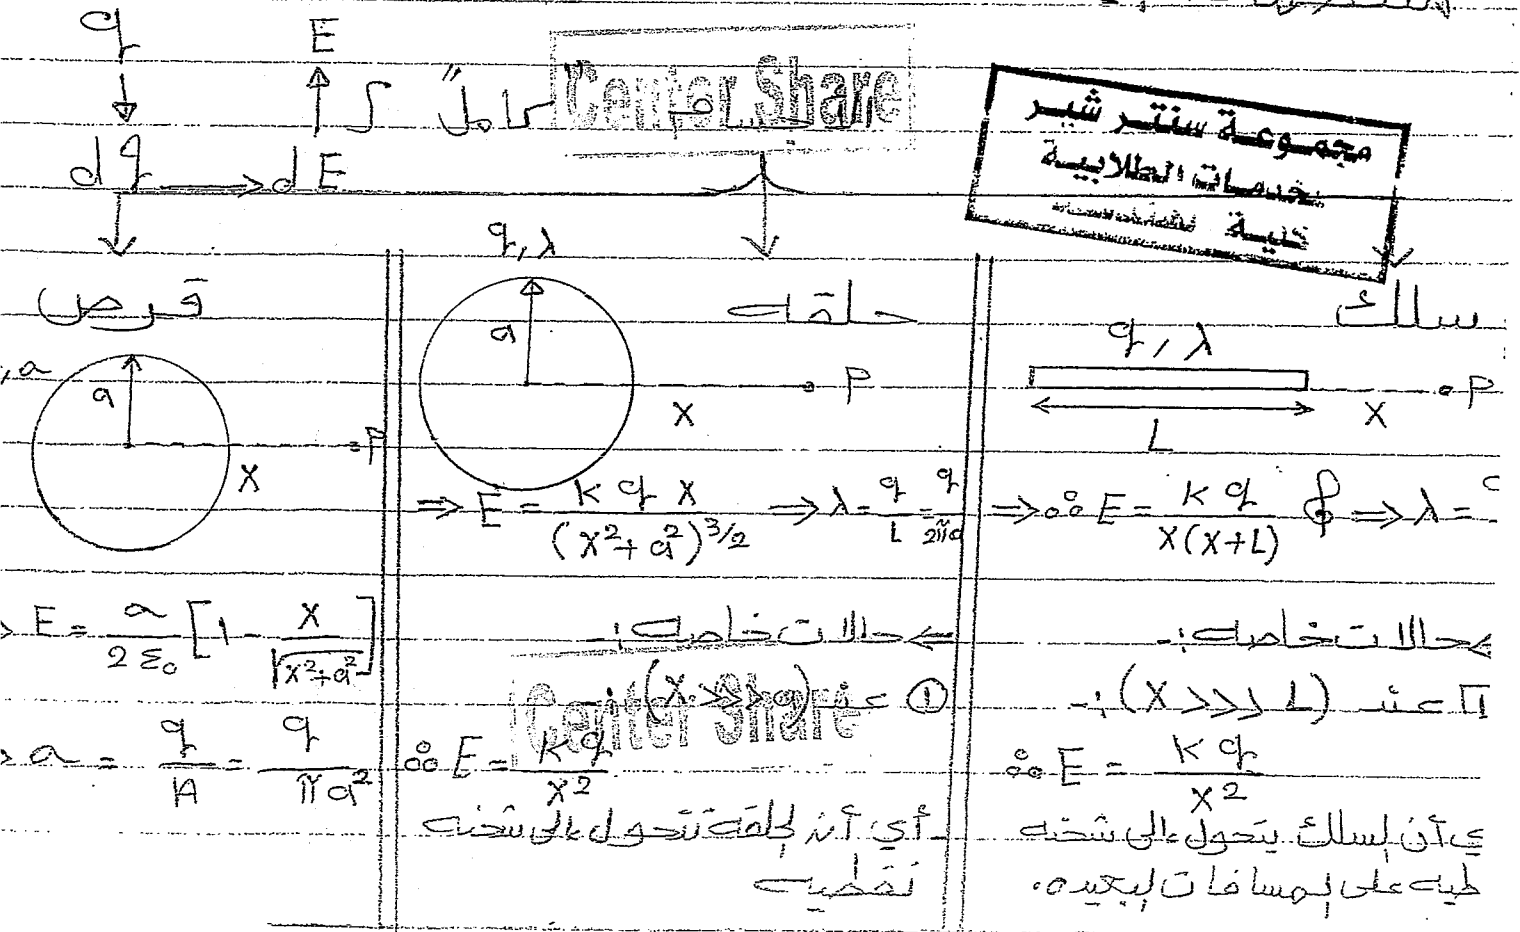 q
E
∫ كامل"
Center Share
dq → dE
مجموعة سنتر شير
لخدمات الطلابية
سلك
q, λ
P
X
L
⇒ ∴ E = kq / X(X+L) ⇒ λ =
حالات خاصه :-
1 عند (X >>> L) :-
∴ E = kq / X²
ي أن لسلك يتحول إلى شحنه
طيه على لمسافات لبعيده.
حلقه
q, λ
a
P
X
⇒ E = k q X / (X² + a²)^3/2 ⇒ λ = q / L = q / 2πa
⇐ حالات خاصه :-
① عند (X >>> a) :-
Center Share
∴ E = kq / X²
- أي أن لحلقة تتحول إلى شحنه
نقطيه
قرص
, a
a
P
X
E = a / 2ε₀ [1 - X / √X² + a²]
a = q / A = q / πa²